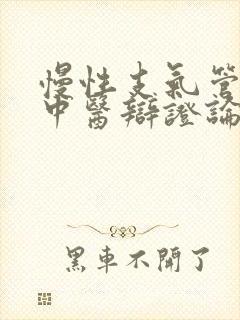 慢性支氣管
中醫辯證論
黑車不開了